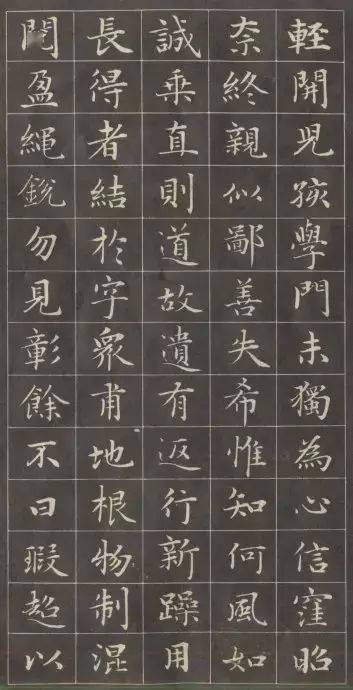 輕開兒孩學門未獨為心信窪昭
奈終親似鄙善失希惟知何風如
誠乘直則道故遺有返行新躁用
長得者結於字眾甫地根物制混
閱盈繩銳勿見彰餘不曰瑕超以